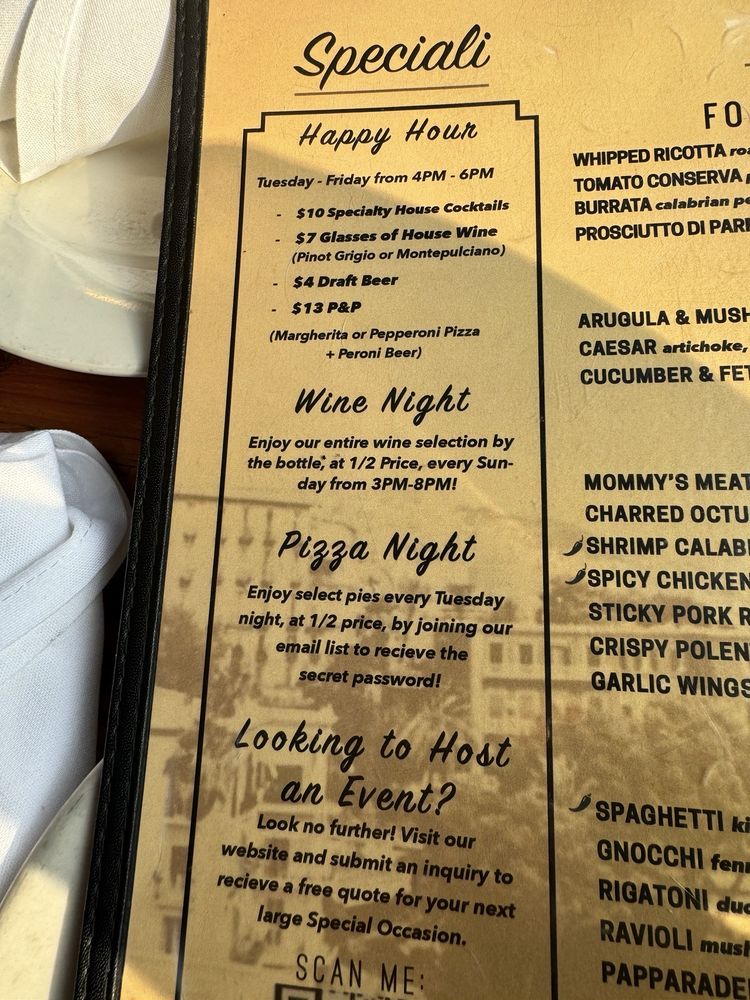 Speciali
Happy Hour
Tuesday - Friday from 4PM - 6PM
- $10 Specialty House Cocktails
- $7 Glasses of House Wine
(Pinot Grigio or Montepulciano)
- $4 Draft Beer
- $13 P&P
(Margherita or Pepperoni Pizza
+ Peroni Beer)
Wine Night
Enjoy our entire wine selection by
the bottle, at 1/2 Price, every Sun-
day from 3PM-8PM!
Pizza Night
Enjoy select pies every Tuesday
night, at 1/2 price, by joining our
email list to recieve the
secret password!
Looking to Host
an Event?
Look no further! Visit our
website and submit an inquiry to
recieve a free quote for your next
large Special Occasion.
SCAN ME:
FO
WHIPPED RICOTTA
TOMATO CONSERVA
BURRATA calabrian
PROSCIUTTO DI
ARUGULA &
CAESAR artichoke,
CUCUMBER &
MOMMY'S
CHARRED
SHRIMP
SPICY CHICKEN
STICKY PORK
CRISPY
GARLIC WINGS
SPAGHETTI
GNOCCHI
RIGATONI
RAVIOLI